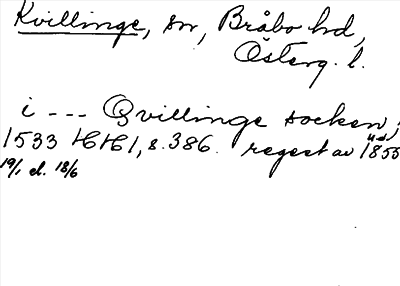 Kvillinge, sn, Bråbo hd,
Österg. l.
i --- Qvillinge socken,
1533 HH 1, s. 386. regest av 1855
19/1 el. 18/6